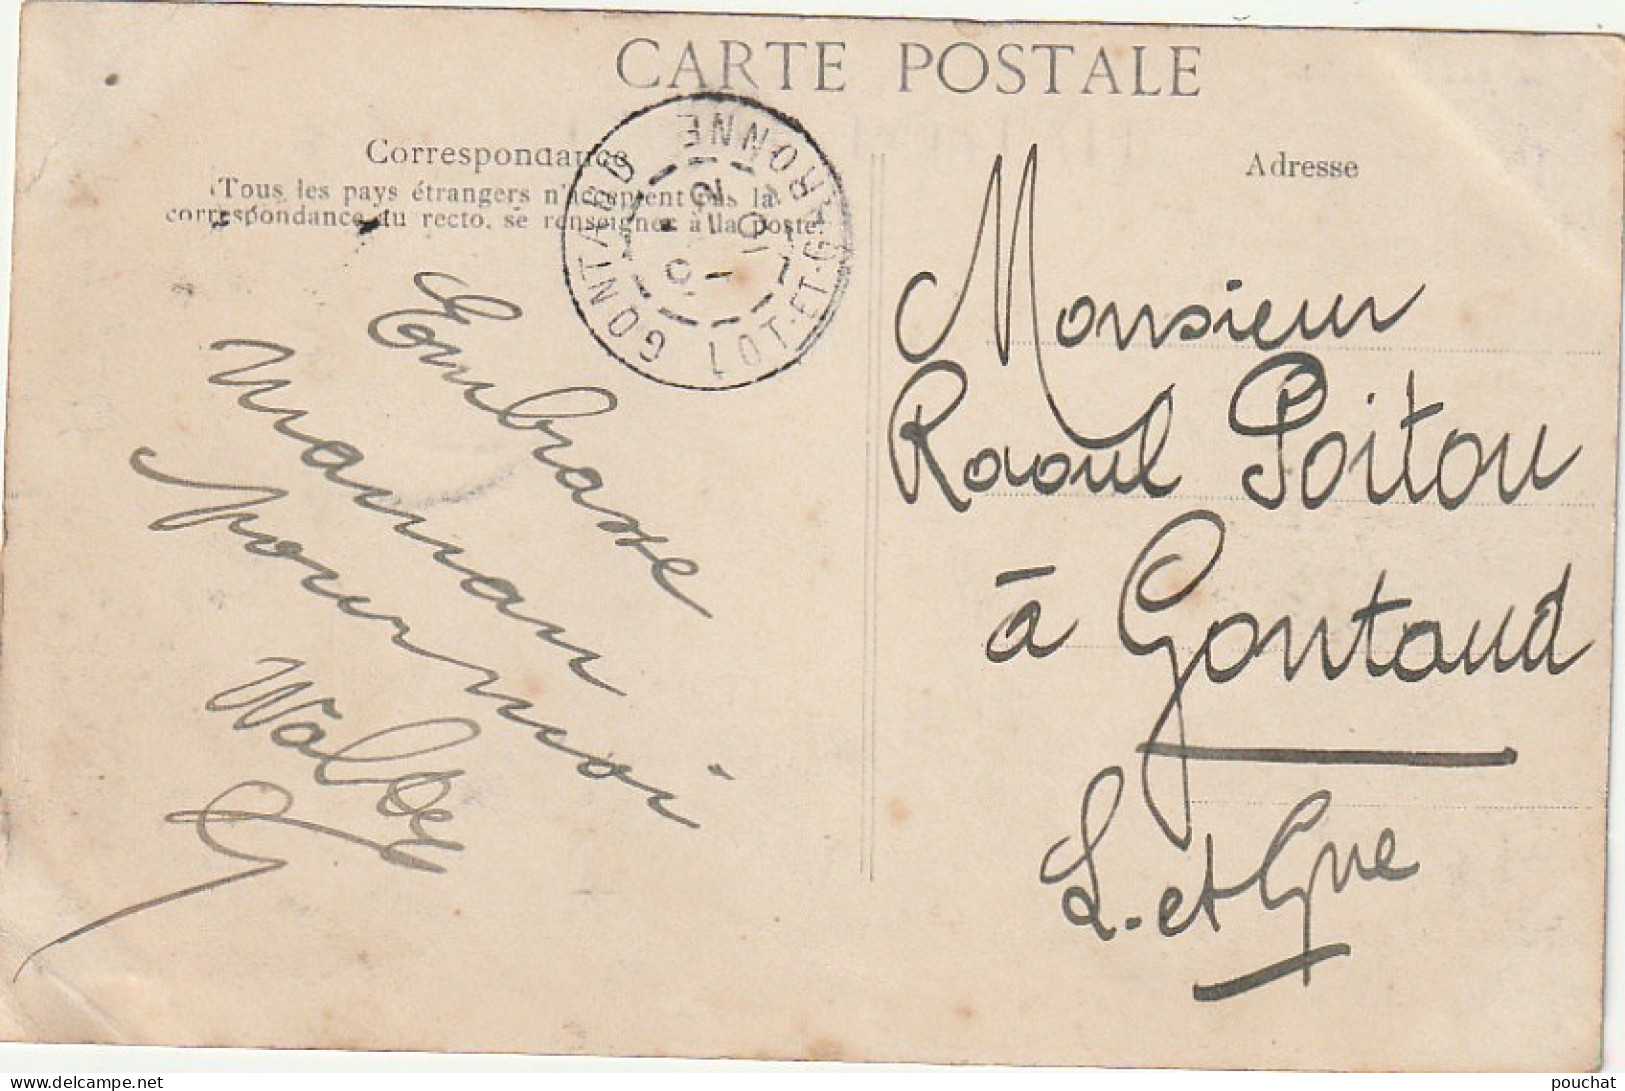 CARTE POSTALE
Correspondance
Tous les pays étrangers n'acceptent pas la
correspondance au recto, se renseigner à la poste.
Adresse
GONTAUD
LOT-ET-GARONNE
Embrasse
maman
pour moi
Monsieur
Raoul Poitou
à Gontaud
L. et Gne
pouchat